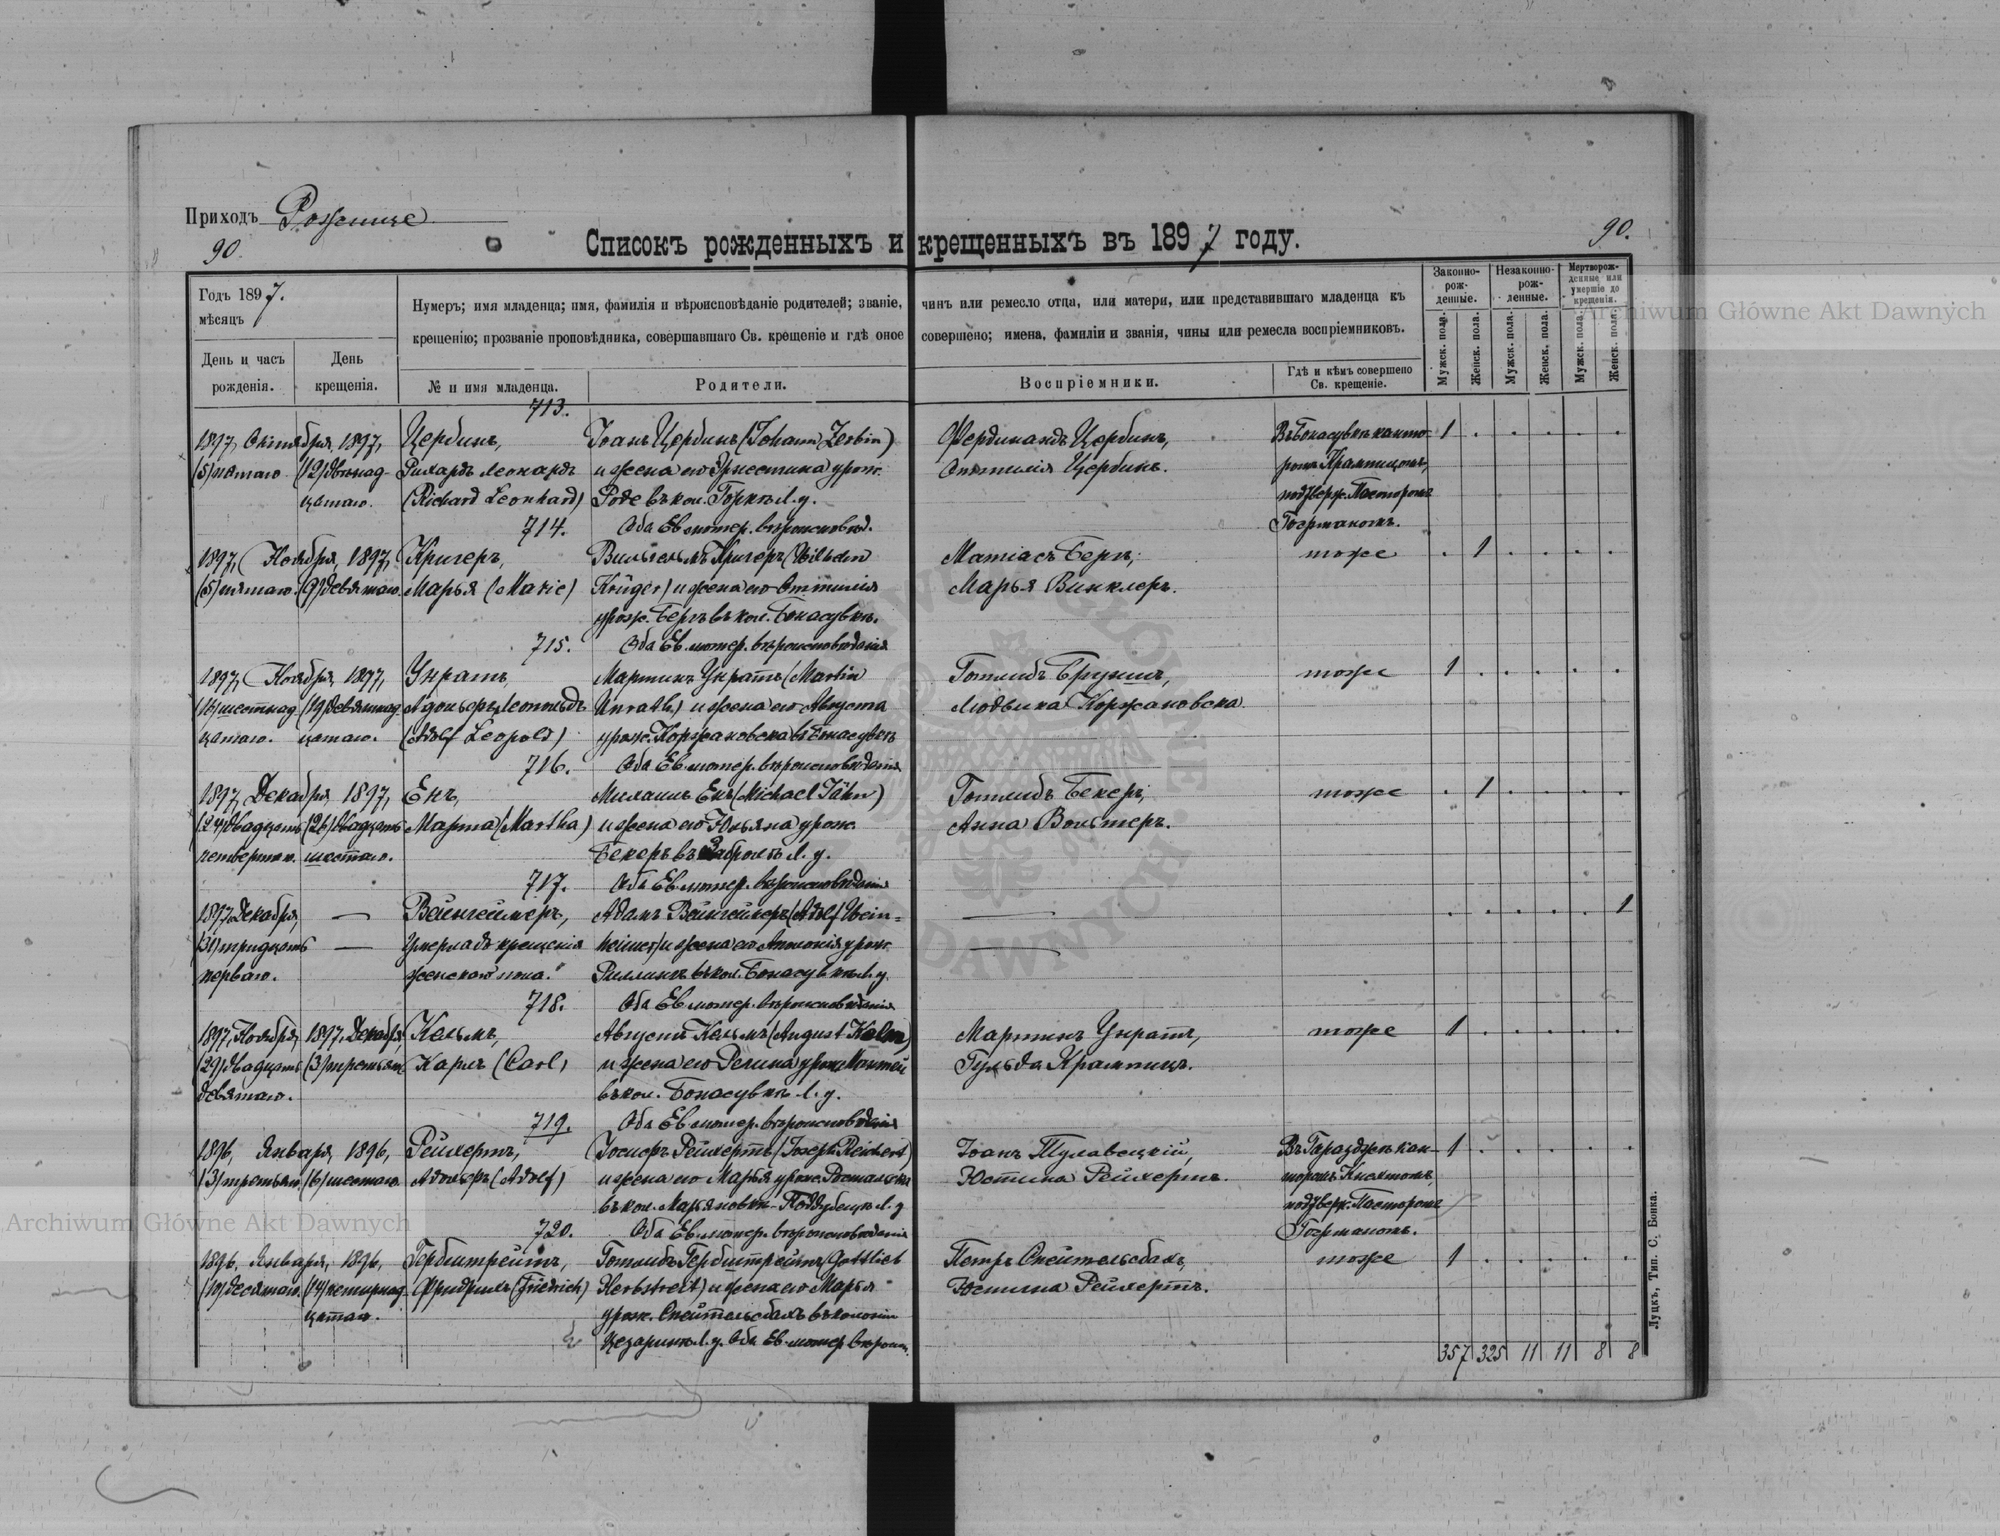 Приходъ Рожище
90.
90.
Списокъ рожденныхъ и крещенныхъ въ 1897 году.
Годъ 1897.
мѣсяцъ
День и часъ рожденія.
День крещенія.
Нумеръ; имя младенца; имя, фамилія и вѣроисповѣданіе родителей; званіе, чинъ или ремесло отца, или матери, или представившаго младенца къ
крещенію; прозваніе проповѣдника, совершавшаго Св. крещеніе и гдѣ оное совершено; имена, фамиліи и званія, чины или ремесла воспріемниковъ.
№ и имя младенца.
Родители.
Воспріемники.
Гдѣ и кѣмъ совершено Св. крещеніе.
Законно-рож-денные.
Незаконно-рож-денные.
Мертворож-денные или умершіе до крещенія.
Мужск. пола.
Женск. пола.
Мужск. пола.
Женск. пола.
Мужск. пола.
Женск. пола.
713.
1897, Октября, 1897, Цербинъ, Іоанъ Цербинъ (Johann Zerbin) Фердинандъ Цербинъ, Въ Бокасувкѣ канто- 1
(5) пятаго (12) двѣнад- Рихардъ Леонардъ и жена его Эрнестина урож. Оттилія Цербинъ. ромъ Крампицомъ,
цатаго. (Richard Leonhard) Роде въ кол. Горкѣ Л. у. подтверж. Пасторомъ
714. Оба Ев. лютер. вѣроисповѣд. Госрманомъ.
1897, Ноября, 1897, Кригеръ, Вильгельмъ Кригеръ (Wilhelm Матіасъ Бергъ, тоже 1
(5) пятаго. (9) девятаго. Марья (Marie) Krüger) и жена его Оттилія Марья Винклеръ.
урож. Бергъ въ кол. Бокасувкѣ.
715. Оба Ев. лютер. вѣроисповѣданія
1897, Ноября, 1897, Унратъ, Мартинъ Унратъ (Martin Готлибъ Брукшъ, тоже 1
(16) шестнад- (19) девятнад- Адольфъ Леопольдъ Unrath) и жена его Августа Людвика Коржановска.
цатаго. цатаго. (Adolf Leopold) урож. Коржановска въ Бокасувкѣ
716. Оба Ев. лютер. вѣроисповѣданія
1897, Декабря, 1897, Енъ, Михаилъ Енъ (Michael Jähn) Готлибъ Бекеръ, тоже 1
(24) двадцать (26) двадцать Марта (Martha) и жена его Юльяна урож. Анна Вольтеръ.
четвертаго. шестаго. Бекеръ въ Л. у.
717. Оба Ев. лютер. вѣроисповѣданія
1897 Декабря, — Вейнгеймеръ, Адамъ Вейнгеймеръ (Adolf Wein= — 1
(31) тридцать — Умерла до крещенія heimer) и жена его Антонія урож. —
перваго. женскаго пола. въ кол. Бокасувкѣ Л. у.
718. Оба Ев. лютер. вѣроисповѣданія
1897, Ноября, 1897, Декабря Кельмъ, Августъ Кельмъ (August Kelm) Мартинъ Унратъ, тоже 1
(29) двадцать (3) третьяго Карлъ (Carl) и жена его Регина урож. Гульда Крампицъ.
девятаго. въ кол. Бокасувкѣ Л. у.
719. Оба Ев. лютер. вѣроисповѣданія
1896, Января, 1896, Рейхертъ, Іосифъ Рейхертъ (Joseph Reichert) Іоанъ Тулавецкій, Въ Гараздже кан- 1
(3) третьяго. (6) шестаго. Адольфъ (Adolf) и жена его Марья урож. Юстина Рейхертъ. торомъ
въ кол. Марьяновкѣ Поддубецкъ Л. у. подтверж. Пасторомъ
720. Оба Ев. лютер. вѣроисповѣданія Госрманомъ.
1896, Января, 1896, Гербштрейтъ, Готлибъ Гербштрейтъ (Gottlieb Петръ Спейтельсбахъ, тоже 1
(10) десятаго. (14) четырнад- Фридрихъ (Friedrich) Herbstreit) и жена его Марья Юстина Рейхертъ.
цатаго. урож. Спейтельсбахъ въ колоніи
Цезаринѣ Л. у. Оба Ев. лютер. вѣроисп.
357 325 11 11 8 8
Луцкъ, Тип. С. Бонка.
Archiwum Główne Akt Dawnych
Archiwum Główne Akt Dawnych